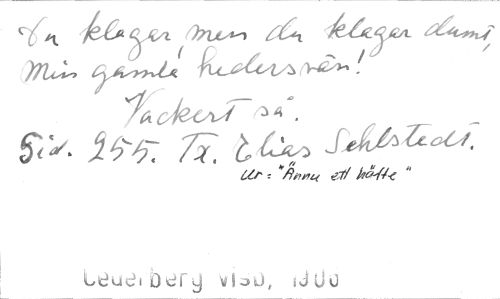 Du klagar, men du klagar dumt,
Min gamla hedersvän!
Vackert så.
Sid. 255. Tx. Elias Sehlstedt.
Ur: "Ännu ett häfte"
Cederberg Visb, 1900